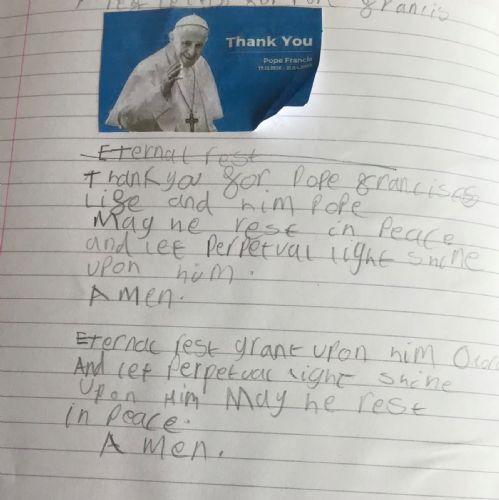 Francis
Thank You
Pope Francis
Eternal rest
Thank you for Pope Franciscs
Life and him Pope
May he rest in Peace
and let Perpetual light shine
upon him.
Amen.
Eternal rest grant upon him O Lord
And let Perpetual light shine
Upon Him May he rest
in Peace.
Amen.